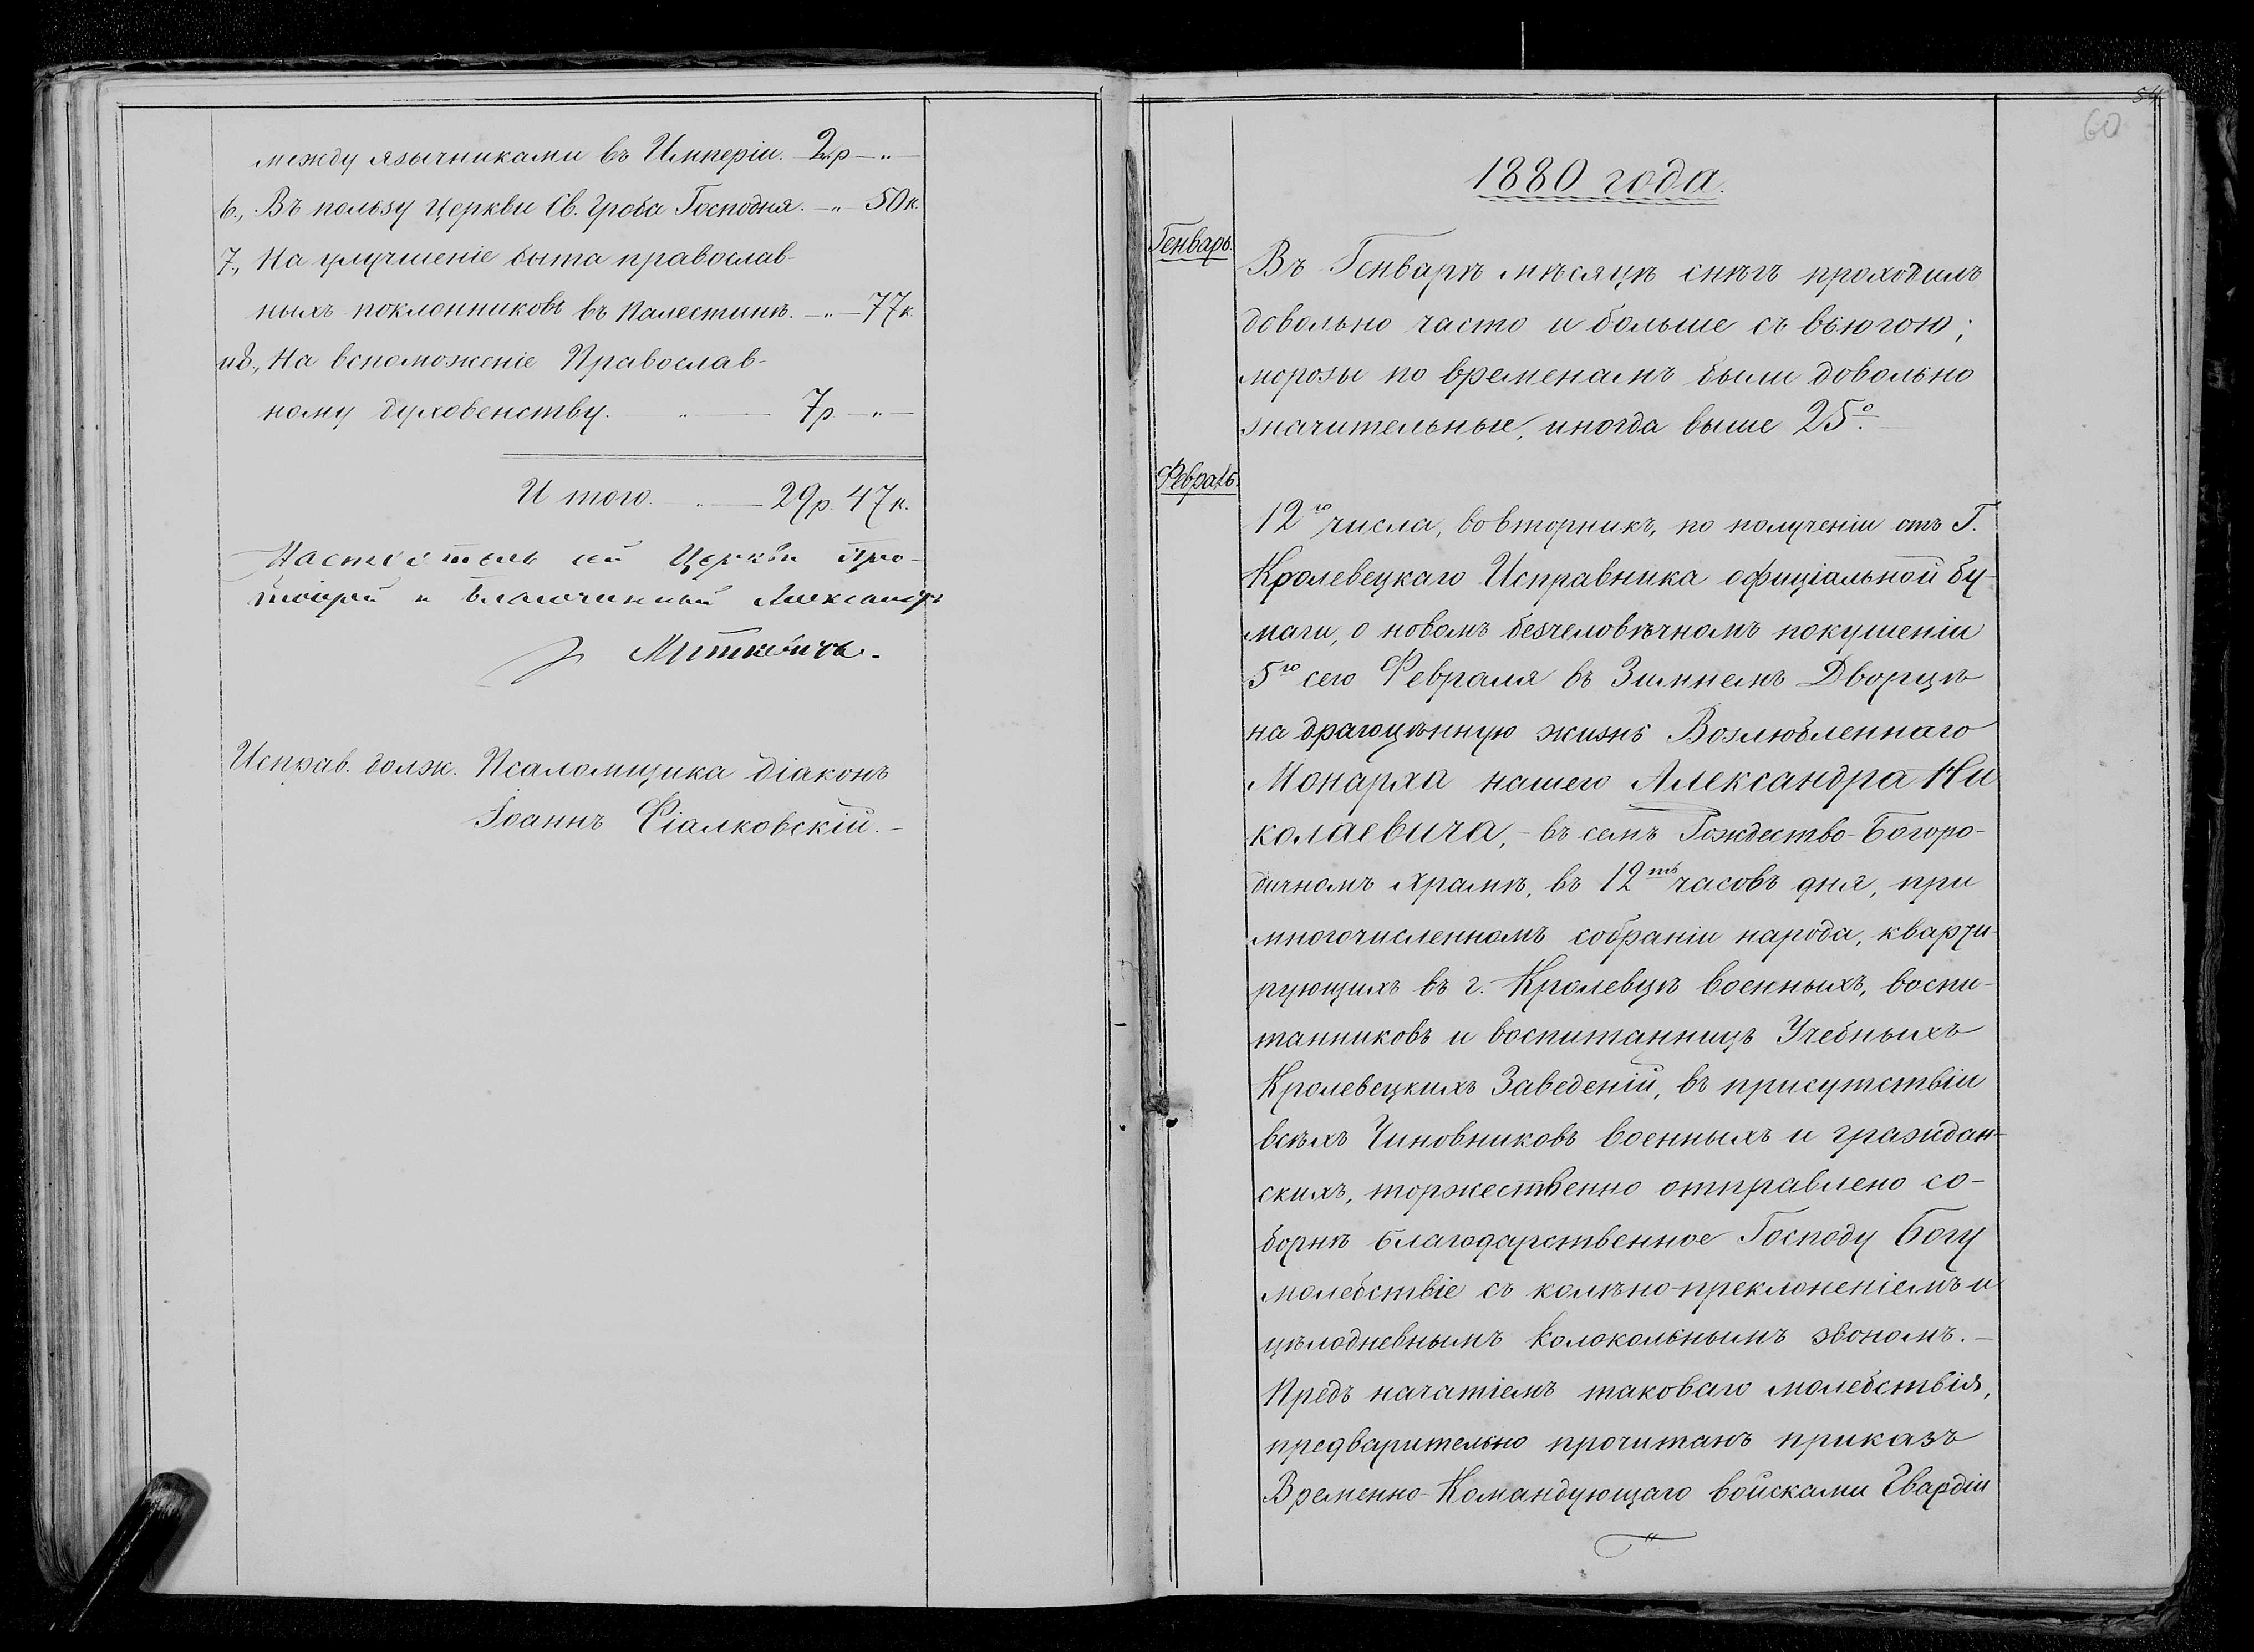 между язычниками въ Имперіи. - 2р - " -
6., Въ пользу церкви Св. Гроба Господня. - " - 50к.
7., На улучшеніе быта православ-
ныхъ поклонниковъ въ Палестинѣ. - " - 77к
и 8., На вспоможеніе Православ-
ному духовенству. - " - 7р - " -
И того. - " - 29р. 47к.
Настоятель сей Церкви Про-
тоіерей и Благочинный Александръ
Миткевичъ.
Исправ. долж. Псаломщика діаконъ
Іоаннъ Фіалковскій. -
54.
60
1880 года.
Генварь.
Въ Генварѣ мѣсяцѣ снѣгъ проходилъ
довольно часто и больше съ вьюгою;
морозы по временамъ были довольно
значительные, иногда выше 25°. -
Февраль.
12го числа, во вторникъ, по полученіи отъ Г.
Кролевецкаго Исправника офиціальной бу-
маги, о новомъ безчеловѣчномъ покушеніи
5го сего Февраля въ Зимнемъ Дворцѣ
на драгоцѣнную жизнь Возлюбленнаго
Монарха нашего Александра Ни
колаевича, - въ семъ Рождество-Богоро-
дичномъ храмѣ, въ 12ть часовъ дня, при
многочисленномъ собраніи народа, кварти-
рующихъ въ г. Кролевцѣ военныхъ, воспи-
танниковъ и воспитанницъ Учебныхъ
Кролевецкихъ Заведеній, въ присутствіи
всѣхъ Чиновниковъ военныхъ и граждан-
скихъ, торжественно отправлено со-
борнѣ благодарственное Господу Богу
молебствіе съ колѣно-преклоненіемъ и
цѣлодневнымъ колокольнымъ звономъ. -
Предъ начатіемъ таковаго молебствія,
предварительно прочитанъ приказъ
Временно-Командующаго войсками Гвардіи